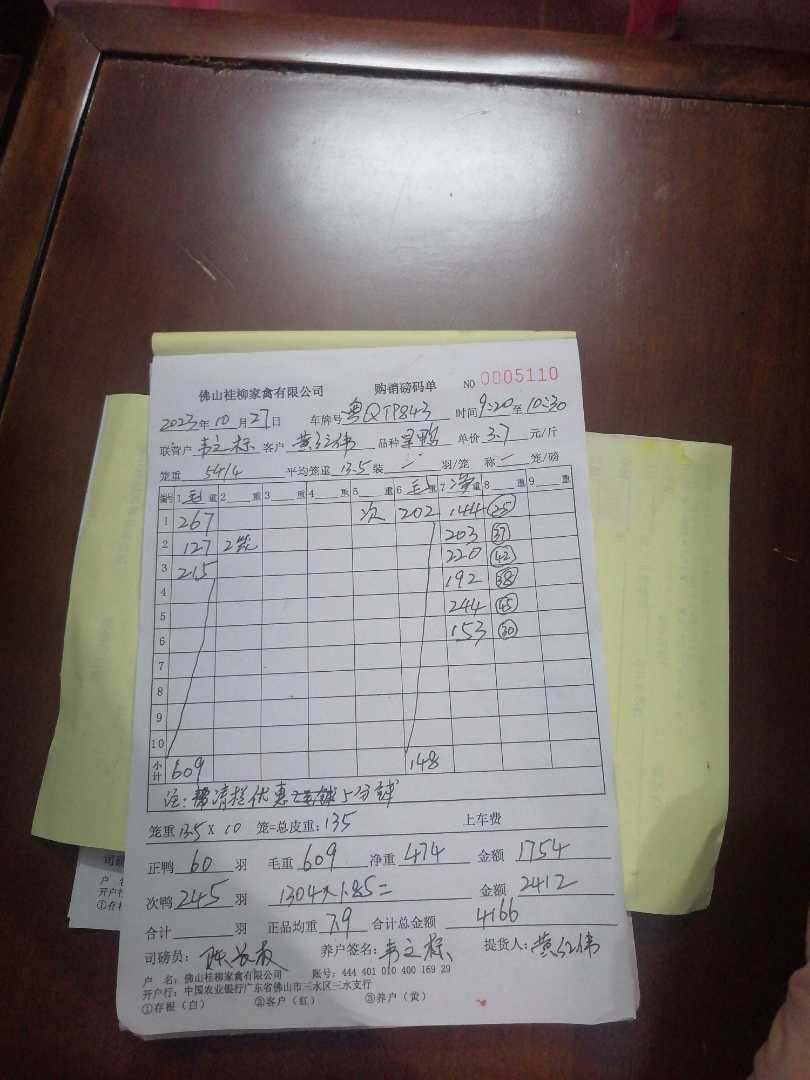 佛山桂柳家禽有限公司 购销磅码单 NO 0005110
2023年10月27日 车牌号粤QTP843 时间9:20至10:30
联营户韦立标 客户黄红伟 品种 单价3.7元/斤
笼重54/4 平均笼重13.5装二羽/笼 称一笼/磅
编号 1毛重 2重 3重 4重 5重 6毛重 7净重 8重 9重
1 267 次 202 144 25
2 127 2笼 203 37
3 215 220 42
4 192 38
5 244 45
6 153 30
7
8
9
10
小计 609 148
注: 清栏优惠 5分钱
笼重13.5×10笼=总皮重:135 上车费
正鸭60羽 毛重609净重474 金额1754
次鸭245羽 1304×1.85= 金额2412
合计 羽 正品均重7.9 合计总金额4166
司磅员: 养户签名:韦立标 提货人:黄红伟
户 名:佛山桂柳家禽有限公司 账号:444 401 010 400 169 29
开户行:中国农业银行广东省佛山市三水区三水支行
①存根(白) ②客户(红) ③养户(黄)
司磅
户 名
开户行
①存根